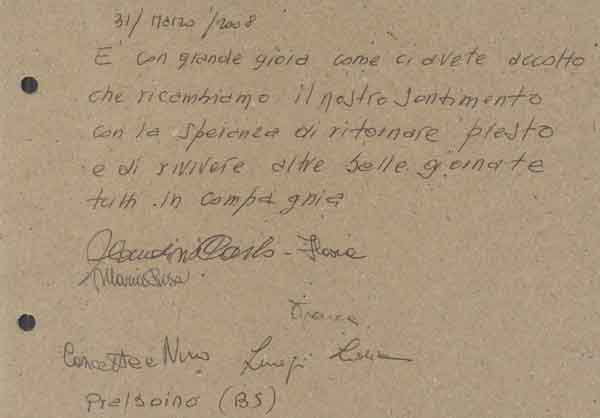 31/Marzo/2008
E' con grande gioia come ci avete accolto
che ricambiamo il nostro sentimento
con la speranza di ritornare presto
e di rivivere altre belle giornate
tutti in compagnia
Carlo - Flavia
Maria Rosa
Franca
Concetta e Nino Luigi
Pralboino (BS)